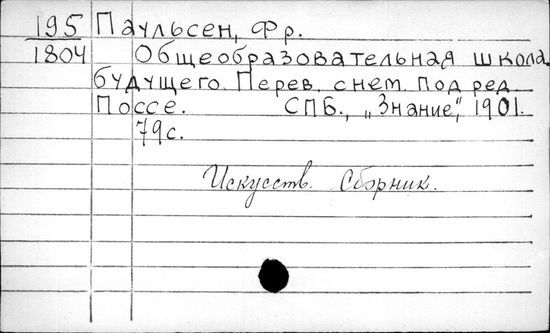 195 Паульсен, Фр.
1804 Общеобразовательная школа
будущего. Перев. с нем. под ред.
Поссе. СПБ., „Знание", 1901.
79с.
Искусств. Сборник.